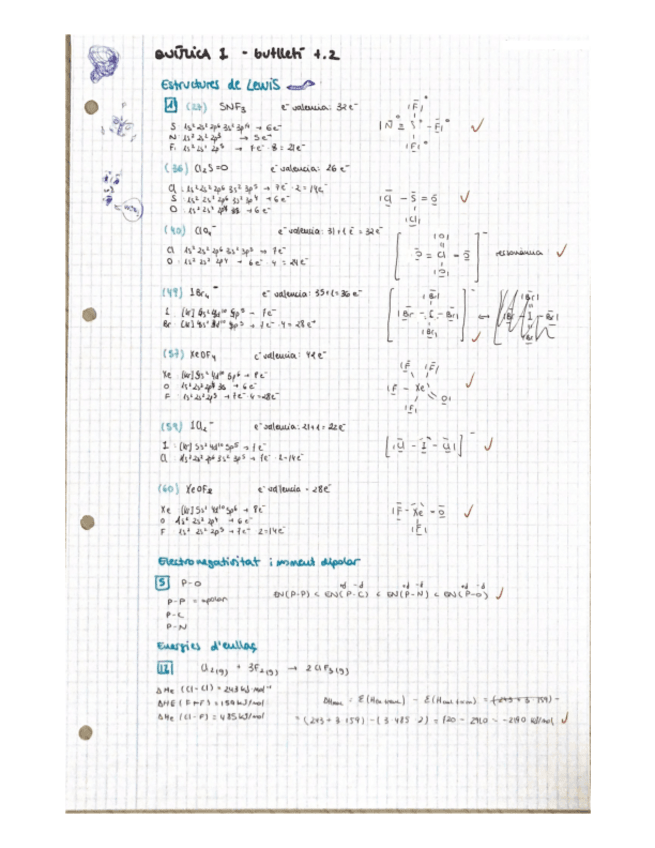 QUÍMICA I - butlletí t.2
Estructures de Lewis
1 (27) SNF₃ e⁻ valencia: 32e⁻
S 1s² 2s² 2p⁶ 3s² 3p⁴ → 6e⁻
N 1s² 2s² 2p³ → 5e⁻
F 1s² 2s² 2p⁵ → 7e⁻ · 3 = 21e⁻
(36) Cl₂S=O e⁻ valencia: 26e⁻
Cl : 1s² 2s² 2p⁶ 3s² 3p⁵ → 7e⁻ · 2 = 14e⁻
S : 1s² 2s² 2p⁶ 3s² 3p⁴ → 6e⁻
O : 1s² 2s² 2p⁴ → 6e⁻
(40) ClO₄⁻ e⁻ valencia: 31+1e⁻ = 32e⁻
Cl 1s² 2s² 2p⁶ 3s² 3p⁵ → 7e⁻
O : 1s² 2s² 2p⁴ → 6e⁻ · 4 = 24e⁻
resonància
(49) IBr₄⁻ e⁻ valencia: 35+1 = 36e⁻
(57) XeOF₄ e⁻ valencia: 42e⁻
Xe [Kr] 5s² 4d¹⁰ 5p⁶ → 8e⁻
O 1s² 2s² 2p⁴ → 6e⁻
F 1s² 2s² 2p⁵ → 7e⁻ · 4 = 28e⁻
(59) ICl₂⁻ e⁻ valencia: 21+1 = 22e⁻
I : [Kr] 5s² 4d¹⁰ 5p⁵ → 7e⁻
Cl 1s² 2s² 2p⁶ 3s² 3p⁵ → 7e⁻ · 2 = 14e⁻
(60) XeOF₂ e⁻ valencia = 28e⁻
Xe [Kr] 5s² 4d¹⁰ 5p⁶ → 8e⁻
O 1s² 2s² 2p⁴ → 6e⁻
F 1s² 2s² 2p⁵ → 7e⁻ · 2 = 14e⁻
Electronegativitat i moment dipolar
5 P-O
P-P = apolar EN(P-P) < EN(P-C) < EN(P-N) < EN(P-O)
P-C
P-N
Energies d'enllaç
12 Cl₂(g) + 3F₂(g) → 2ClF₃(g)
ΔHe (Cl-Cl) = 243 kJ·mol⁻¹
ΔHE (F-F) = 159 kJ/mol
ΔHe (Cl-F) = 485 kJ/mol = (243 + 3 · 159) - (3 · 485 · 2) = 720 - 2910 = -2190 kJ/mol